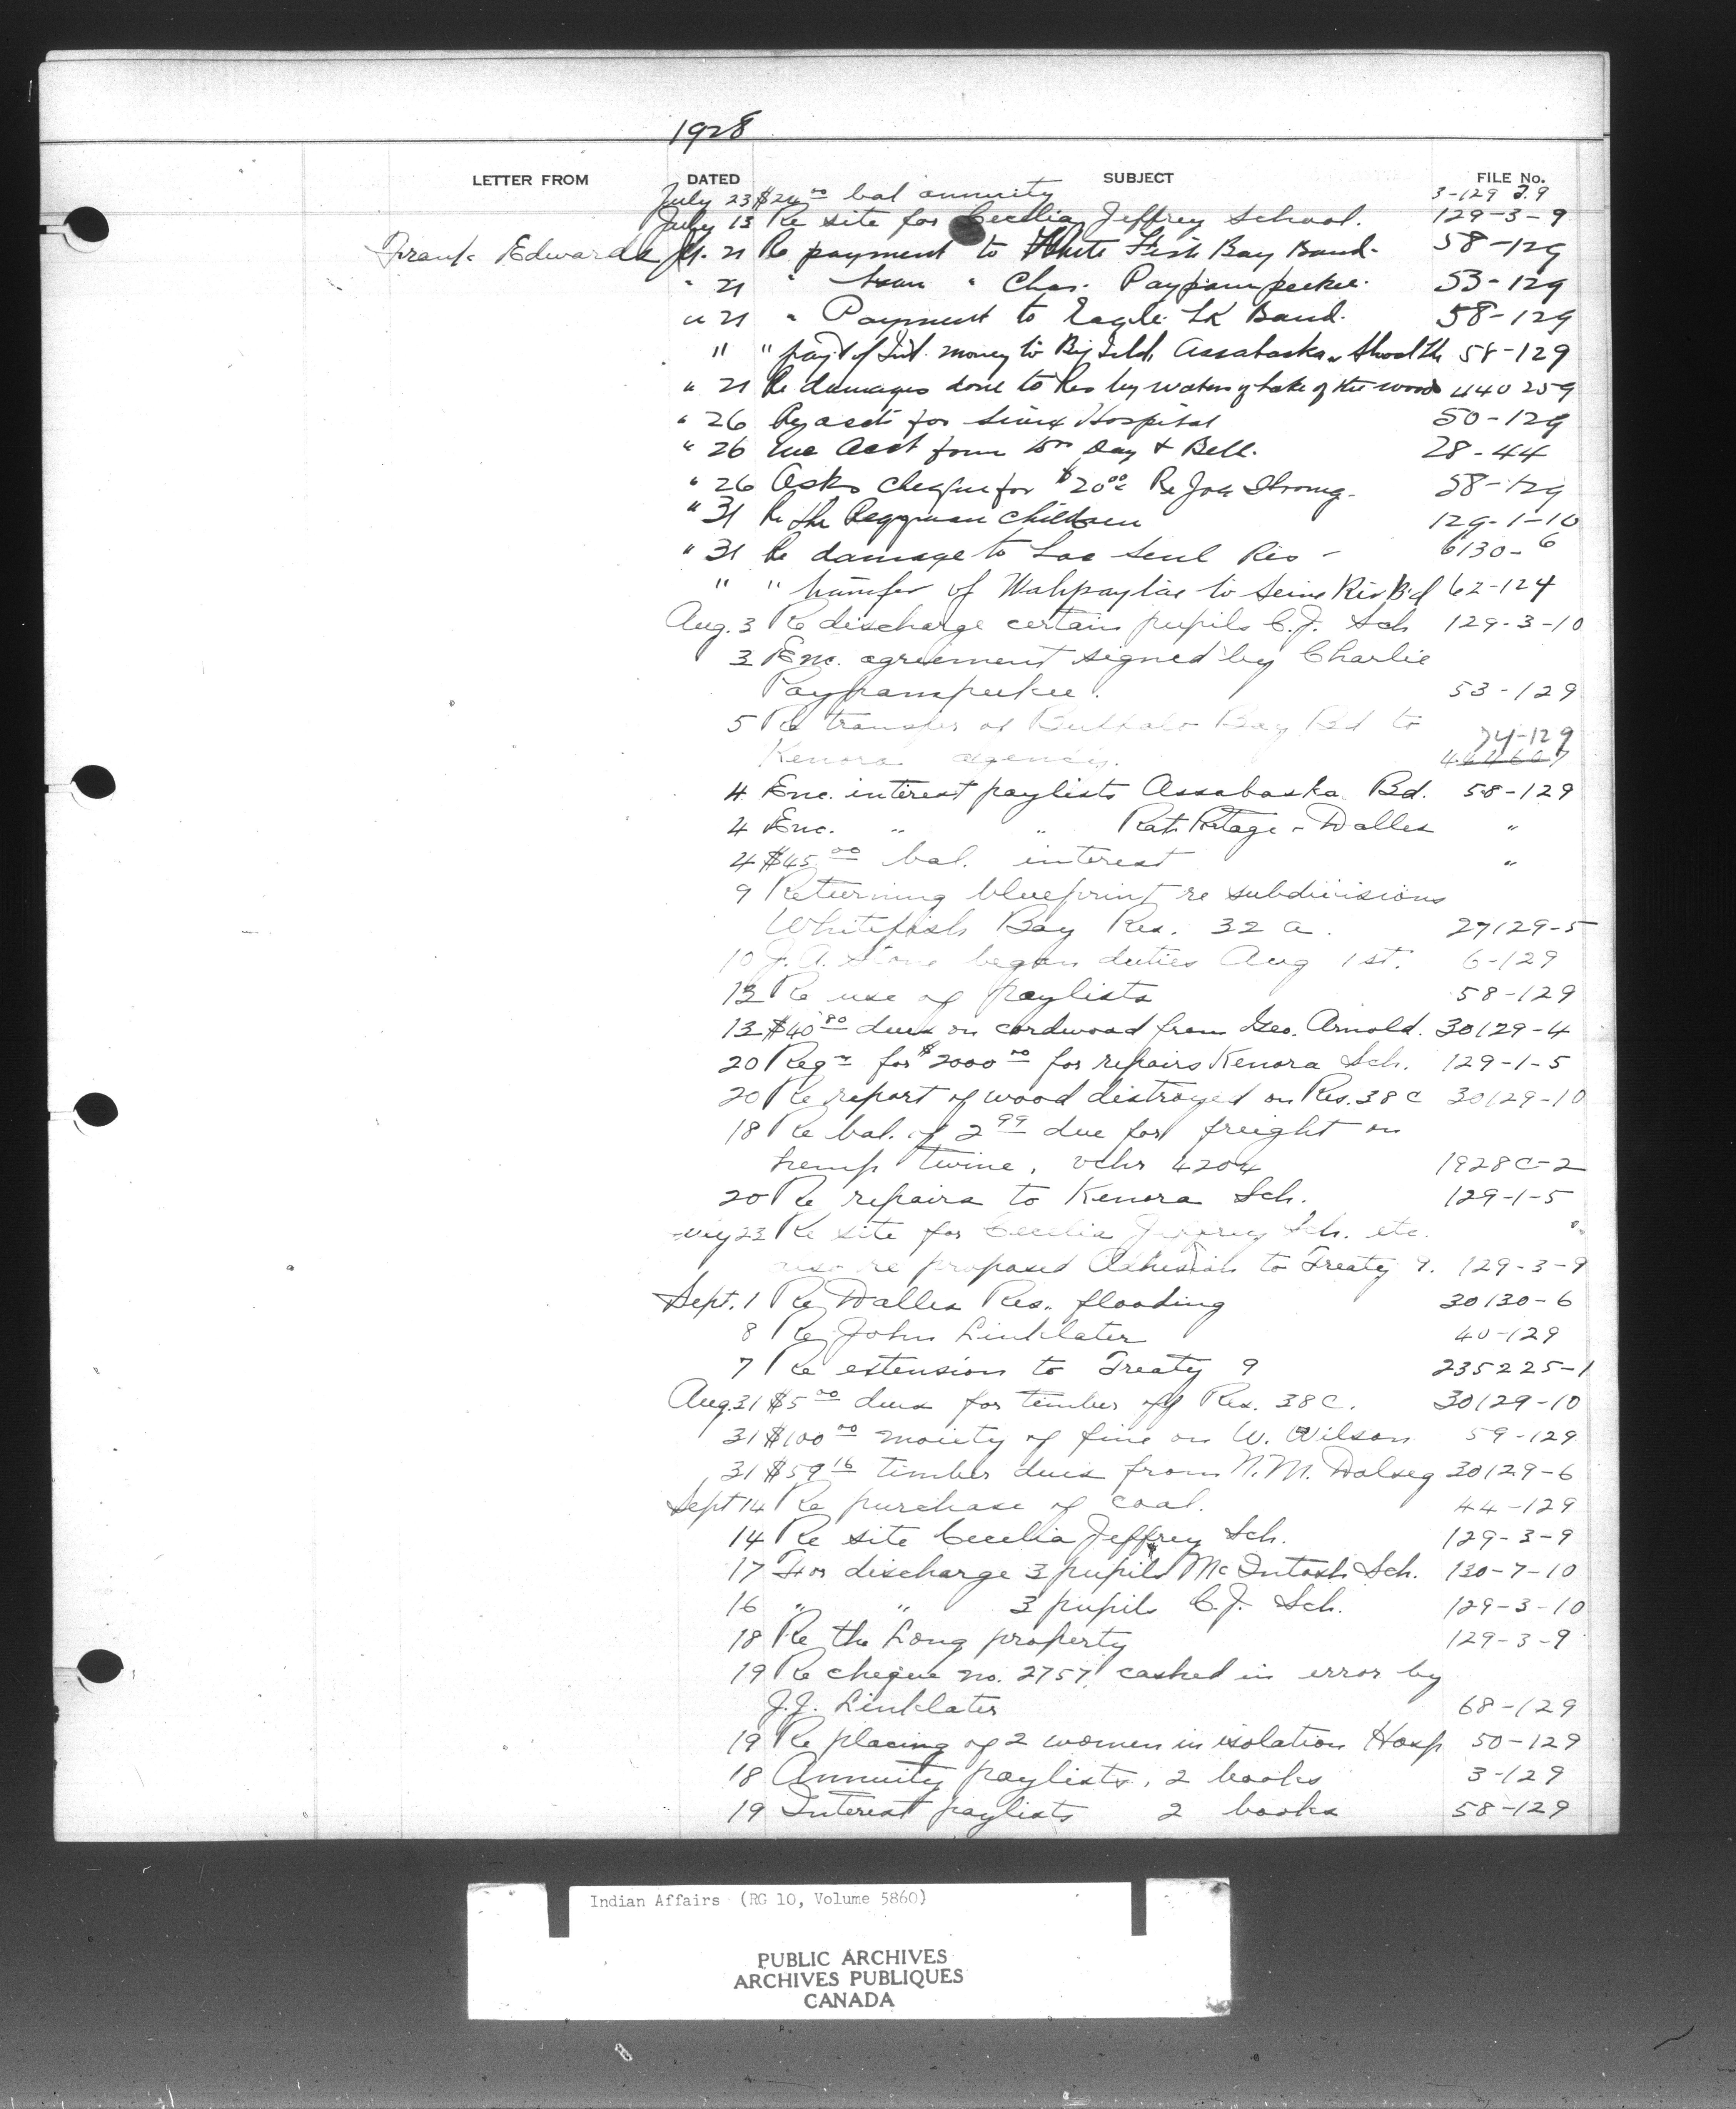 1928
LETTER FROM DATED SUBJECT FILE No.
July 23 $24.00 bal annuity 3-129
July 13 Re site for Cecilia Jeffrey School. 129-3-9
Frank Edwards Jy. 21 Re payment to White Fish Bay Band. 58-129
" 21 " Loan " Chas. Paypompeekee. 53-129
" 21 " Payment to Eagle Lk Band. 58-129
" " payt of Int. money to Big Isld, Assabaska & Shoal Lk 58-129
" 21 Re damages done to Res by waters of Lake of the Woods 440259
" 26 accts for Hospital 50-129
" 26 Acct from Drs Day & Bell. 28-44
" 26 Asks cheque for $20.00 Re Joe Strong. 58-129
" 31 Re the children 129-1-10
" 31 Re damage to Lac Seul Res - 6130-6
" " transfer of Wahpaytae to Seine Riv Bd 62-124
Aug. 3 Re discharge certain pupils C.J. Sch 129-3-10
3 Enc. agreement signed by Charlie
Paypompeekee. 53-129
5 Re transfer of Buffalo Bay Bd to
Kenora agency. 74-129
4 Enc. interest paylists Assabaska Bd. 58-129
4 Enc. " " Rat Portage - Dalles "
4 $45.00 bal. interest "
9 Returning blueprint re subdivisions
Whitefish Bay Res. 32 a. 27129-5
10 J. A. Stone began duties Aug 1st. 6-129
13 Re use of paylists 58-129
13 $40.80 dues on cordwood from Geo. Arnold. 30129-4
20 Reqn for $2000.00 for repairs Kenora Sch. 129-1-5
20 Re report of wood destroyed on Res. 38 C 30129-10
18 Re bal. of 2.99 due for freight on
hemp twine, vchr 4204 1928C-2
20 Re repairs to Kenora Sch. 129-1-5
23 Re site for Cecilia Jeffrey Sch. etc. "
also re proposed Adhesion to Treaty 9. 129-3-9
Sept. 1 Re Dalles Res. flooding 30130-6
8 Re John Linklater 40-129
7 Re extension to Treaty 9 235225-1
Aug. 31 $5.00 dues for timber off Res. 38C. 30129-10
31 $100.00 moiety of fine on W. Wilson 59-129
31 $59.16 timber dues from N.M. Dalseg 30129-6
Sept 14 Re purchase of coal. 44-129
14 Re site Cecilia Jeffrey Sch. 129-3-9
17 For discharge 3 pupils McIntosh Sch. 130-7-10
16 " " 3 pupils C.J. Sch. 129-3-10
18 Re the Long property 129-3-9
19 Re cheque no. 2757 cashed in error by
J.J. Linklater 68-129
19 Re placing of 2 women in isolation Hosp 50-129
18 Annuity paylists, 2 books 3-129
19 Interest paylists 2 books 58-129
Indian Affairs (RG 10, Volume 5860)
PUBLIC ARCHIVES
ARCHIVES PUBLIQUES
CANADA